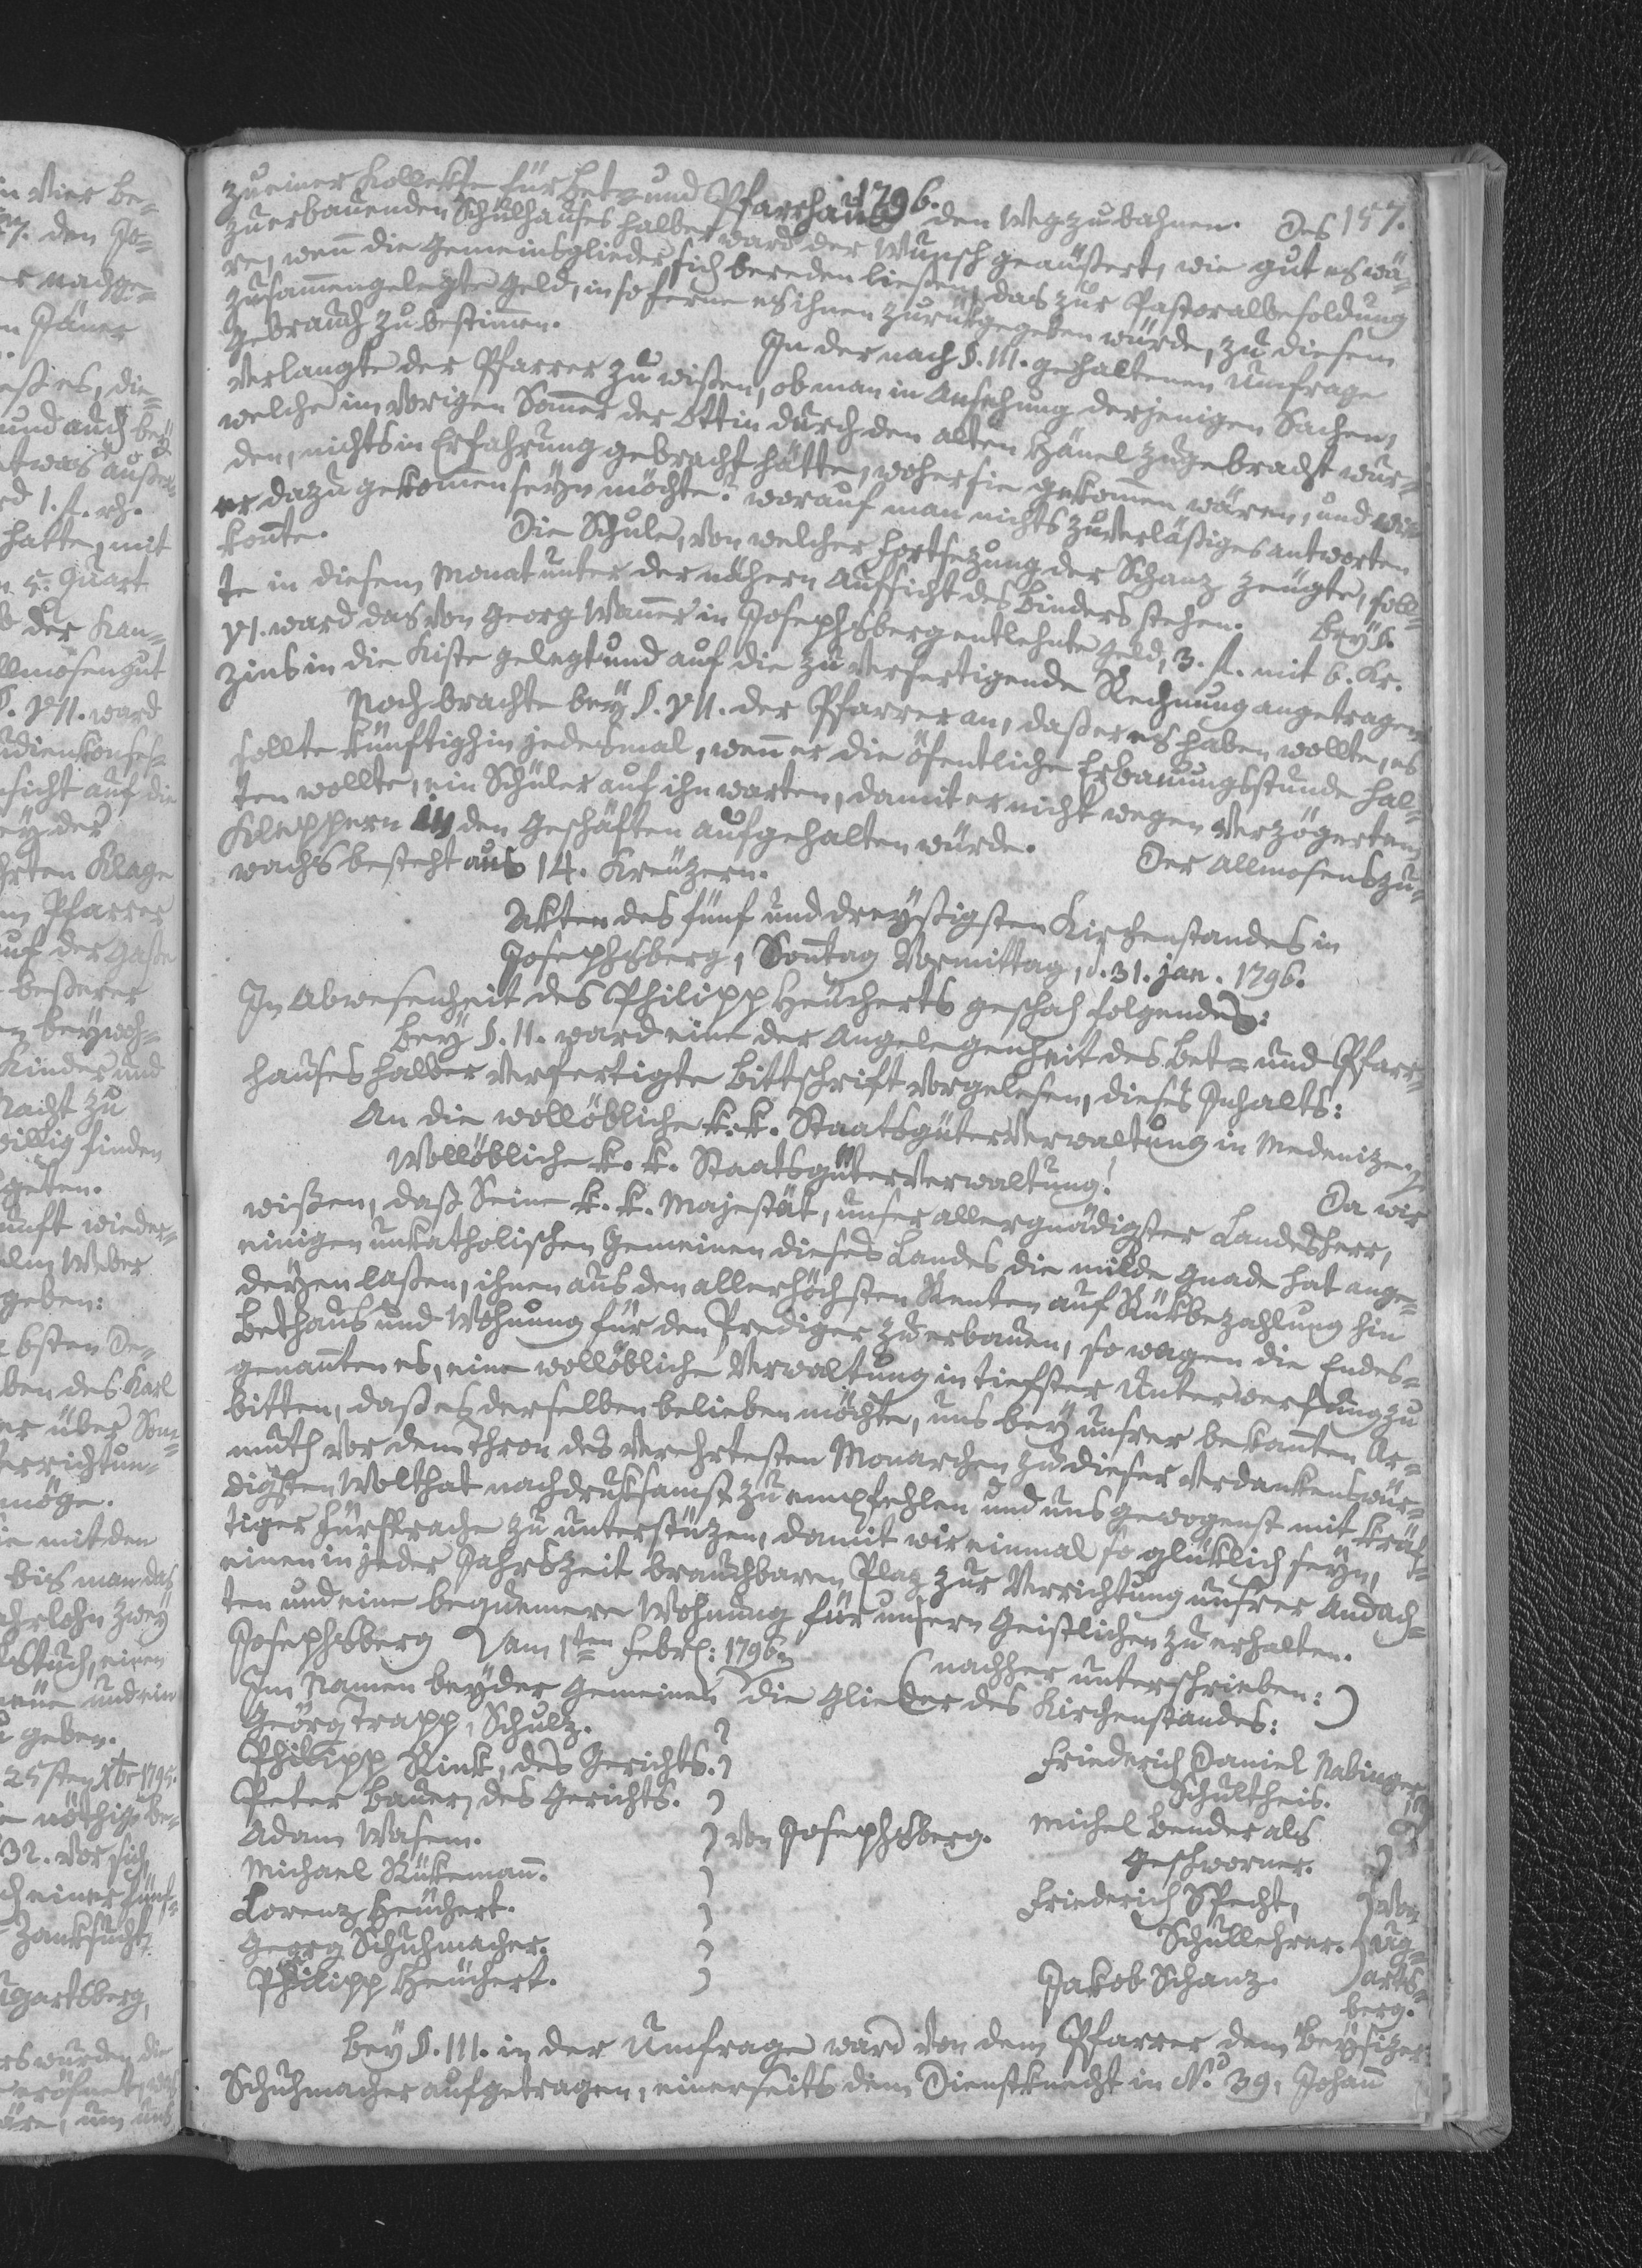 1796.
157.
zu einer Kollekte für Bet- und Pfarrhaus den Weg zu bahnen. Des
zuerbauenden Schulhauses halber ward der Wunsch geäußert, wie gut es wä-
re, wenn die Gemeinsglieder sich bereden ließen, das zur Pastoralbesoldung
zusam̄engelegte Geld, insoferne es ihnen zurükgegeben würde, zu diesem
Gebrauch zu bestim̄en.
In der nach §. III. gehaltenen Umfrage
verlangte der Pfarrer zu wißen, ob man in Ansehung derjenigen Sachen,
welche im vorigen Som̄er der Ottin durch den alten Hänel zugebracht wur-
den, nichts in Erfahrung gebracht hätte, woher sie gekom̄en wären, und wie
er dazu gekom̄en seyn möchte? worauf man nichts zuverläßiges antworten
kon̄te.
Die Schule, von welcher Fortsezung der Schanz zeugte, soll-
te in diesem Monat unter der nähern Aufsicht des Binders stehen.
Bey §.
VI. ward das von Georg Wanner in Josephsberg entlehnte Geld, 3. fl. mit 6. Kr.
Zins in die Kiste gelegt und auf die zu verfertigende Rechnung angetragen.
Noch brachte bey §. VII. der Pfarrer an, daß er es haben wollte, es
sollte künftighin jedesmal, wen̄ er die öfentliche Erbauungsstunde hal-
ten wollte, ein Schüler auf ihn warten, damit er nicht wegen verzögertem
Klappern in den Geschäften aufgehalten würde.
Der Allmosenszu-
wachs besteht aus 14. Kreuzern.
Akten des fünf und dreyßigsten Kirchenstandes in
Josephsberg, Son̄tag Vormittag, d. 31. Jan. 1796.
In Abwesenheit des Philipp Heucherts geschah folgendes:
Bey §. II. ward eine der Angelegenheit des Bet- und Pfarr-
hauses halber verfertigte Bittschrift vorgelesen, dieses Inhalts:
An die wollöbliche k. k. Staatsgüterverwaltung in Medenize.
Wollöbliche k. k. Staatsgüterverwaltung!
Da wir
wißen, daß Seine k. k. Majestät, unser allergnädigster Landesherr,
einigen unkatholischen Gemeinen dieses Landes die milde Gnade hat ange-
deyen laßen, ihnen aus den allerhöchsten Renten auf Rükbezahlung hin
Bethaus und Wohnung für den Prediger zu erbauen, so wagen die Endes-
genan̄ten es, eine wollöbliche Verwaltung in tiefster Unterwerfung zu
bitten, daß es derselben belieben möchte, uns bey unsrer bekan̄ten Ar-
muth vor dem Thron des verehrtesten Monarchen zu dieser verdankenswür-
digsten Wolthat nachdruksamst zu empfehlen und uns gewogenst mit kräf-
tiger Fürsprache zu unterstüzen, damit wir einmal so glüklich seyn,
einen in jeder Jahrszeit brauchbaren Plaz zur Verrichtung unsrer Andach-
ten und eine bequemere Wohnung für unsern Geistlichen zu erhalten.
Josephsberg am 1ten Febr: 1796.
(nachher unterschrieben:)
Im Namen beyder Gemeinen die Glieder des Kirchenstandes:
Georg Trapp, Schulz.
Philipp Rink, des Gerichts.
Peter Bauer, des Gerichts.
Adam Wasem.
von Josephsberg.
Michael Rükeman̄.
Lorenz Heuchert.
Georg Schuhmacher.
Philipp Heuchert.
Friederich Daniel Nabinger
Schultheis.
Michel Bender als
Geschworner.
Friederich Specht,
Schullehrer.
Jakob Schanz.
von
Ug-
arts-
berg.
Bey §. III. in der Umfrage ward von dem Pfarrer dem Beysizer
Schuhmacher aufgetragen, einerseits dem Dienstknecht in No. 39, Johan̄